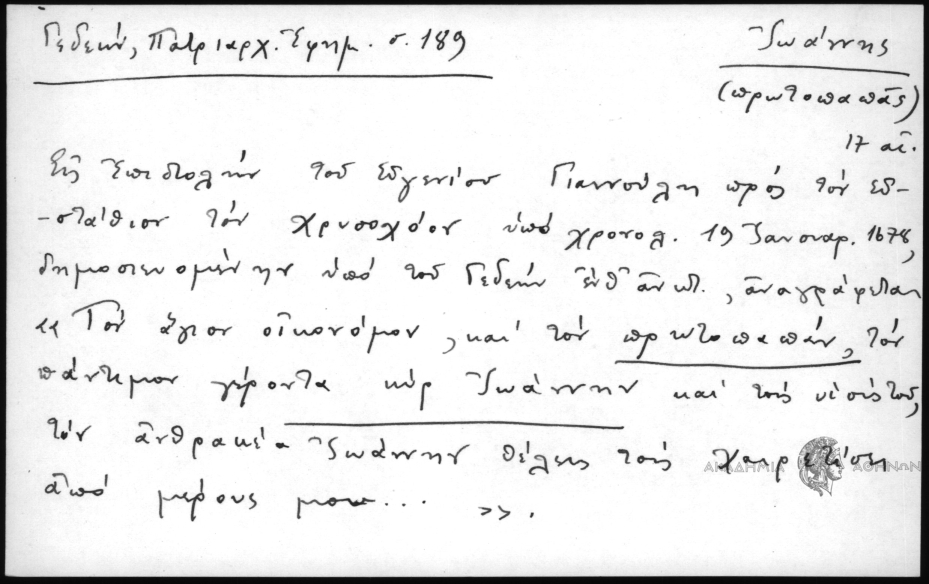 Γεδεών, Πατριαρχ. Ἐφημ. σ. 189
Ἰωάννης
(πρωτοπαπᾶς)
17 αἰ.
Εἰς ἐπιστολὴν τοῦ Εὐγενίου Γιαννούλη πρὸς τὸν Εὐ-
-στάθιον τὸν χρυσοχόον ὑπό χρονολ. 19 Ἰανουαρ. 1678,
δημοσιευομένην ὑπό τοῦ Γεδεών ἔνθ' ἀνωτ., ἀναγράφεται
«Τόν ἅγιον οἰκονόμον, καί τόν πρωτοπαπάν, τόν
πάντιμον γέροντα κύρ Ἰωάννην καί τούς υἱούς του,
τόν ἀνθρακέα Ἰωάννην θέλεις τούς χαιρετίσει
ἀπό μέρους μου... ».
ΑΚΑΔΗΜΙΑ ΑΘΗΝΩΝ